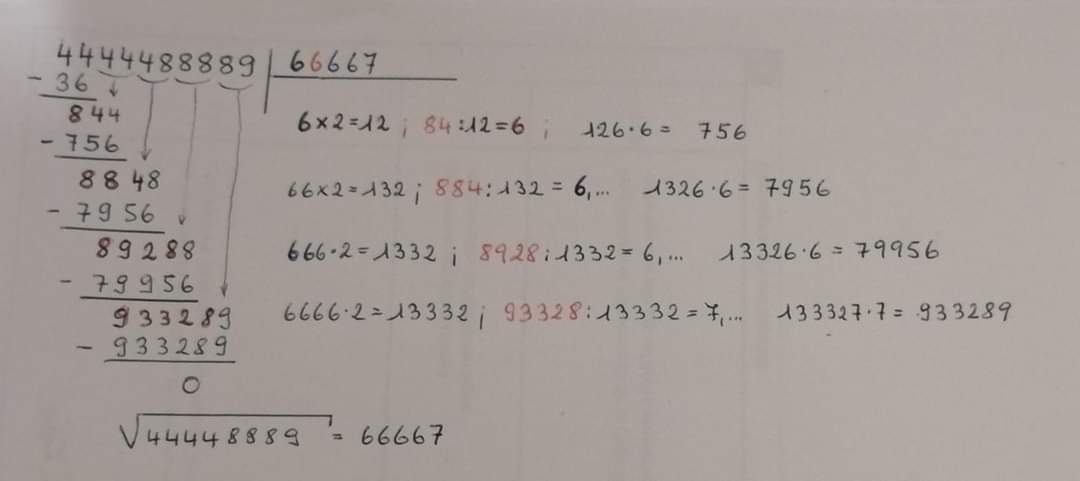 4444488889 | 66667
- 36
844
6×2=12 ; 84:12=6 ; 126·6= 756
- 756
8848 66×2=132 ; 884:132 = 6,... 1326·6= 7956
- 7956
89288 666·2=1332 ; 8928:1332=6,... 13326·6=79956
- 79956
933289 6666·2=13332 ; 93328:13332=7,... 133327·7= 933289
- 933289
0
√44448889 = 66667